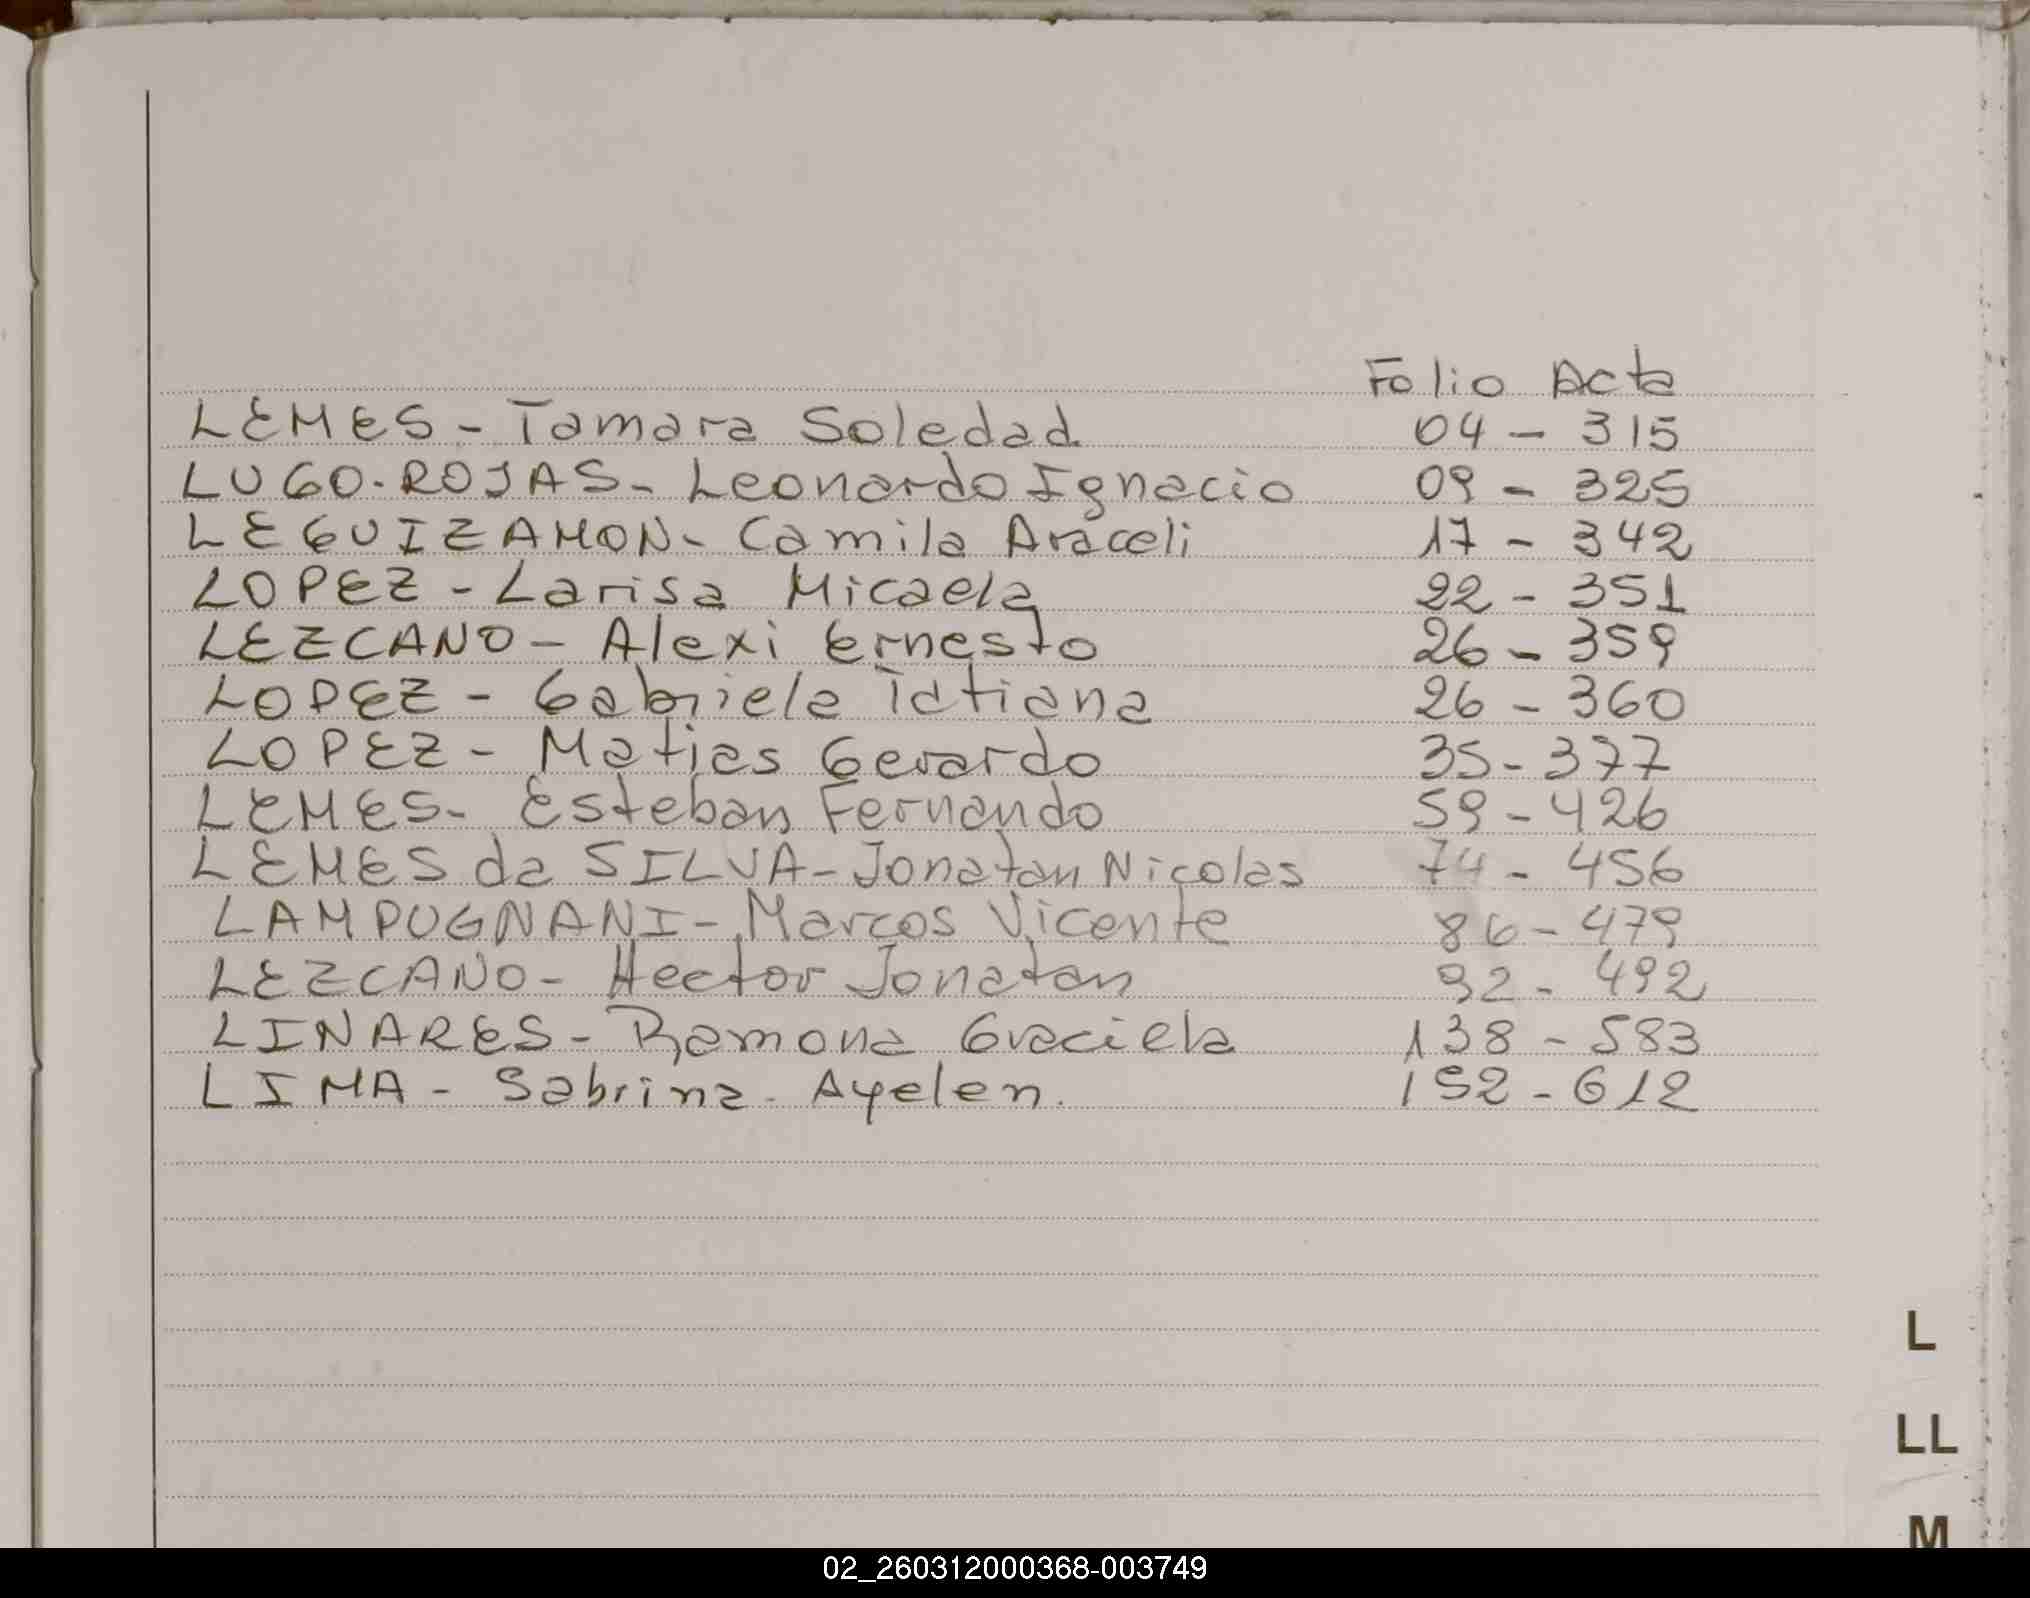 Folio Acta
LEMES - Tamara Soledad 04 - 315
LUGO-ROJAS - Leonardo Ignacio 09 - 325
LEGUIZAMON - Camila Araceli 17 - 342
LOPEZ - Larisa Micaela 22 - 351
LEZCANO - Alexi Ernesto 26 - 359
LOPEZ - Gabriela Tatiana 26 - 360
LOPEZ - Matias Gerardo 35 - 377
LEMES - Esteban Fernando 59 - 426
LEMES da SILVA - Jonatan Nicolas 74 - 456
LAMPUGNANI - Marcos Vicente 86 - 479
LEZCANO - Hector Jonatan 92 - 492
LINARES - Ramona Graciela 138 - 583
LIMA - Sabrina Ayelen. 152 - 612
L
LL
M
02_260312000368-003749